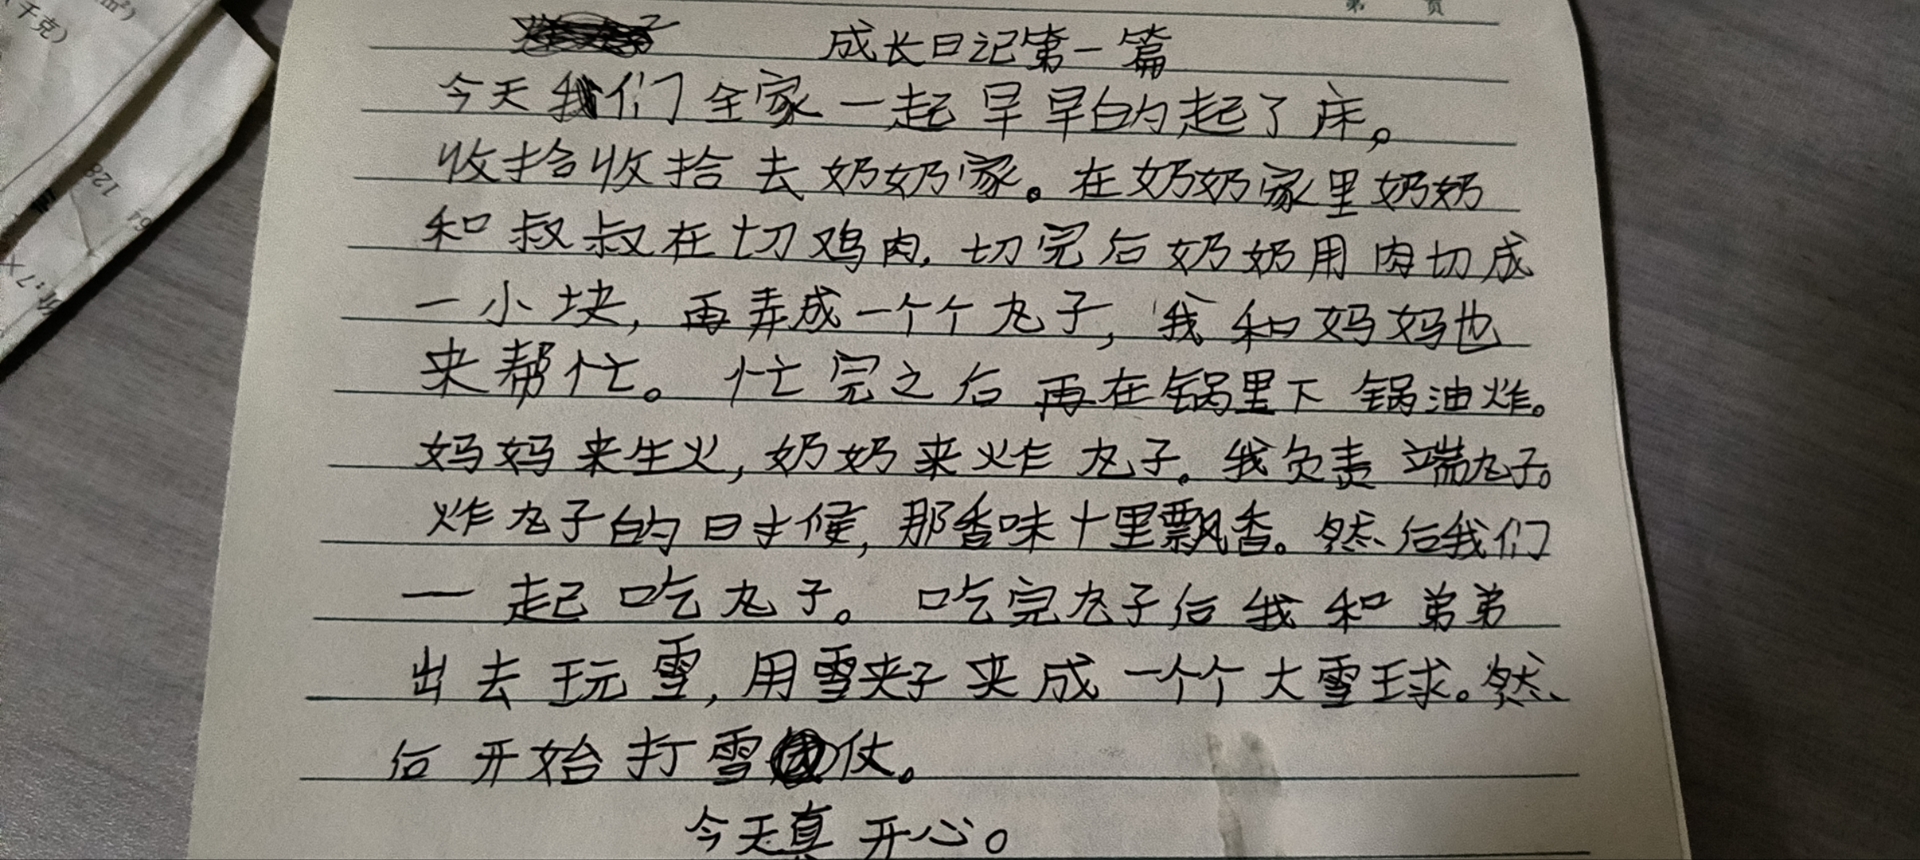 第 页
成长日记第一篇
今天我们全家一起早早的起了床。
收拾收拾去奶奶家。在奶奶家里奶奶
和叔叔在切鸡肉，切完后奶奶用肉切成
一小块，再弄成一个个丸子，我和妈妈也
来帮忙。忙完之后再在锅里下锅油炸。
妈妈来生火，奶奶来炸丸子。我负责端丸子。
炸丸子的时候，那香味十里飘香。然后我们
一起吃丸子。吃完丸子后我和弟弟
出去玩雪，用雪夹子夹成一个个大雪球。然
后开始打雪仗。
今天真开心。
千克）
128
64